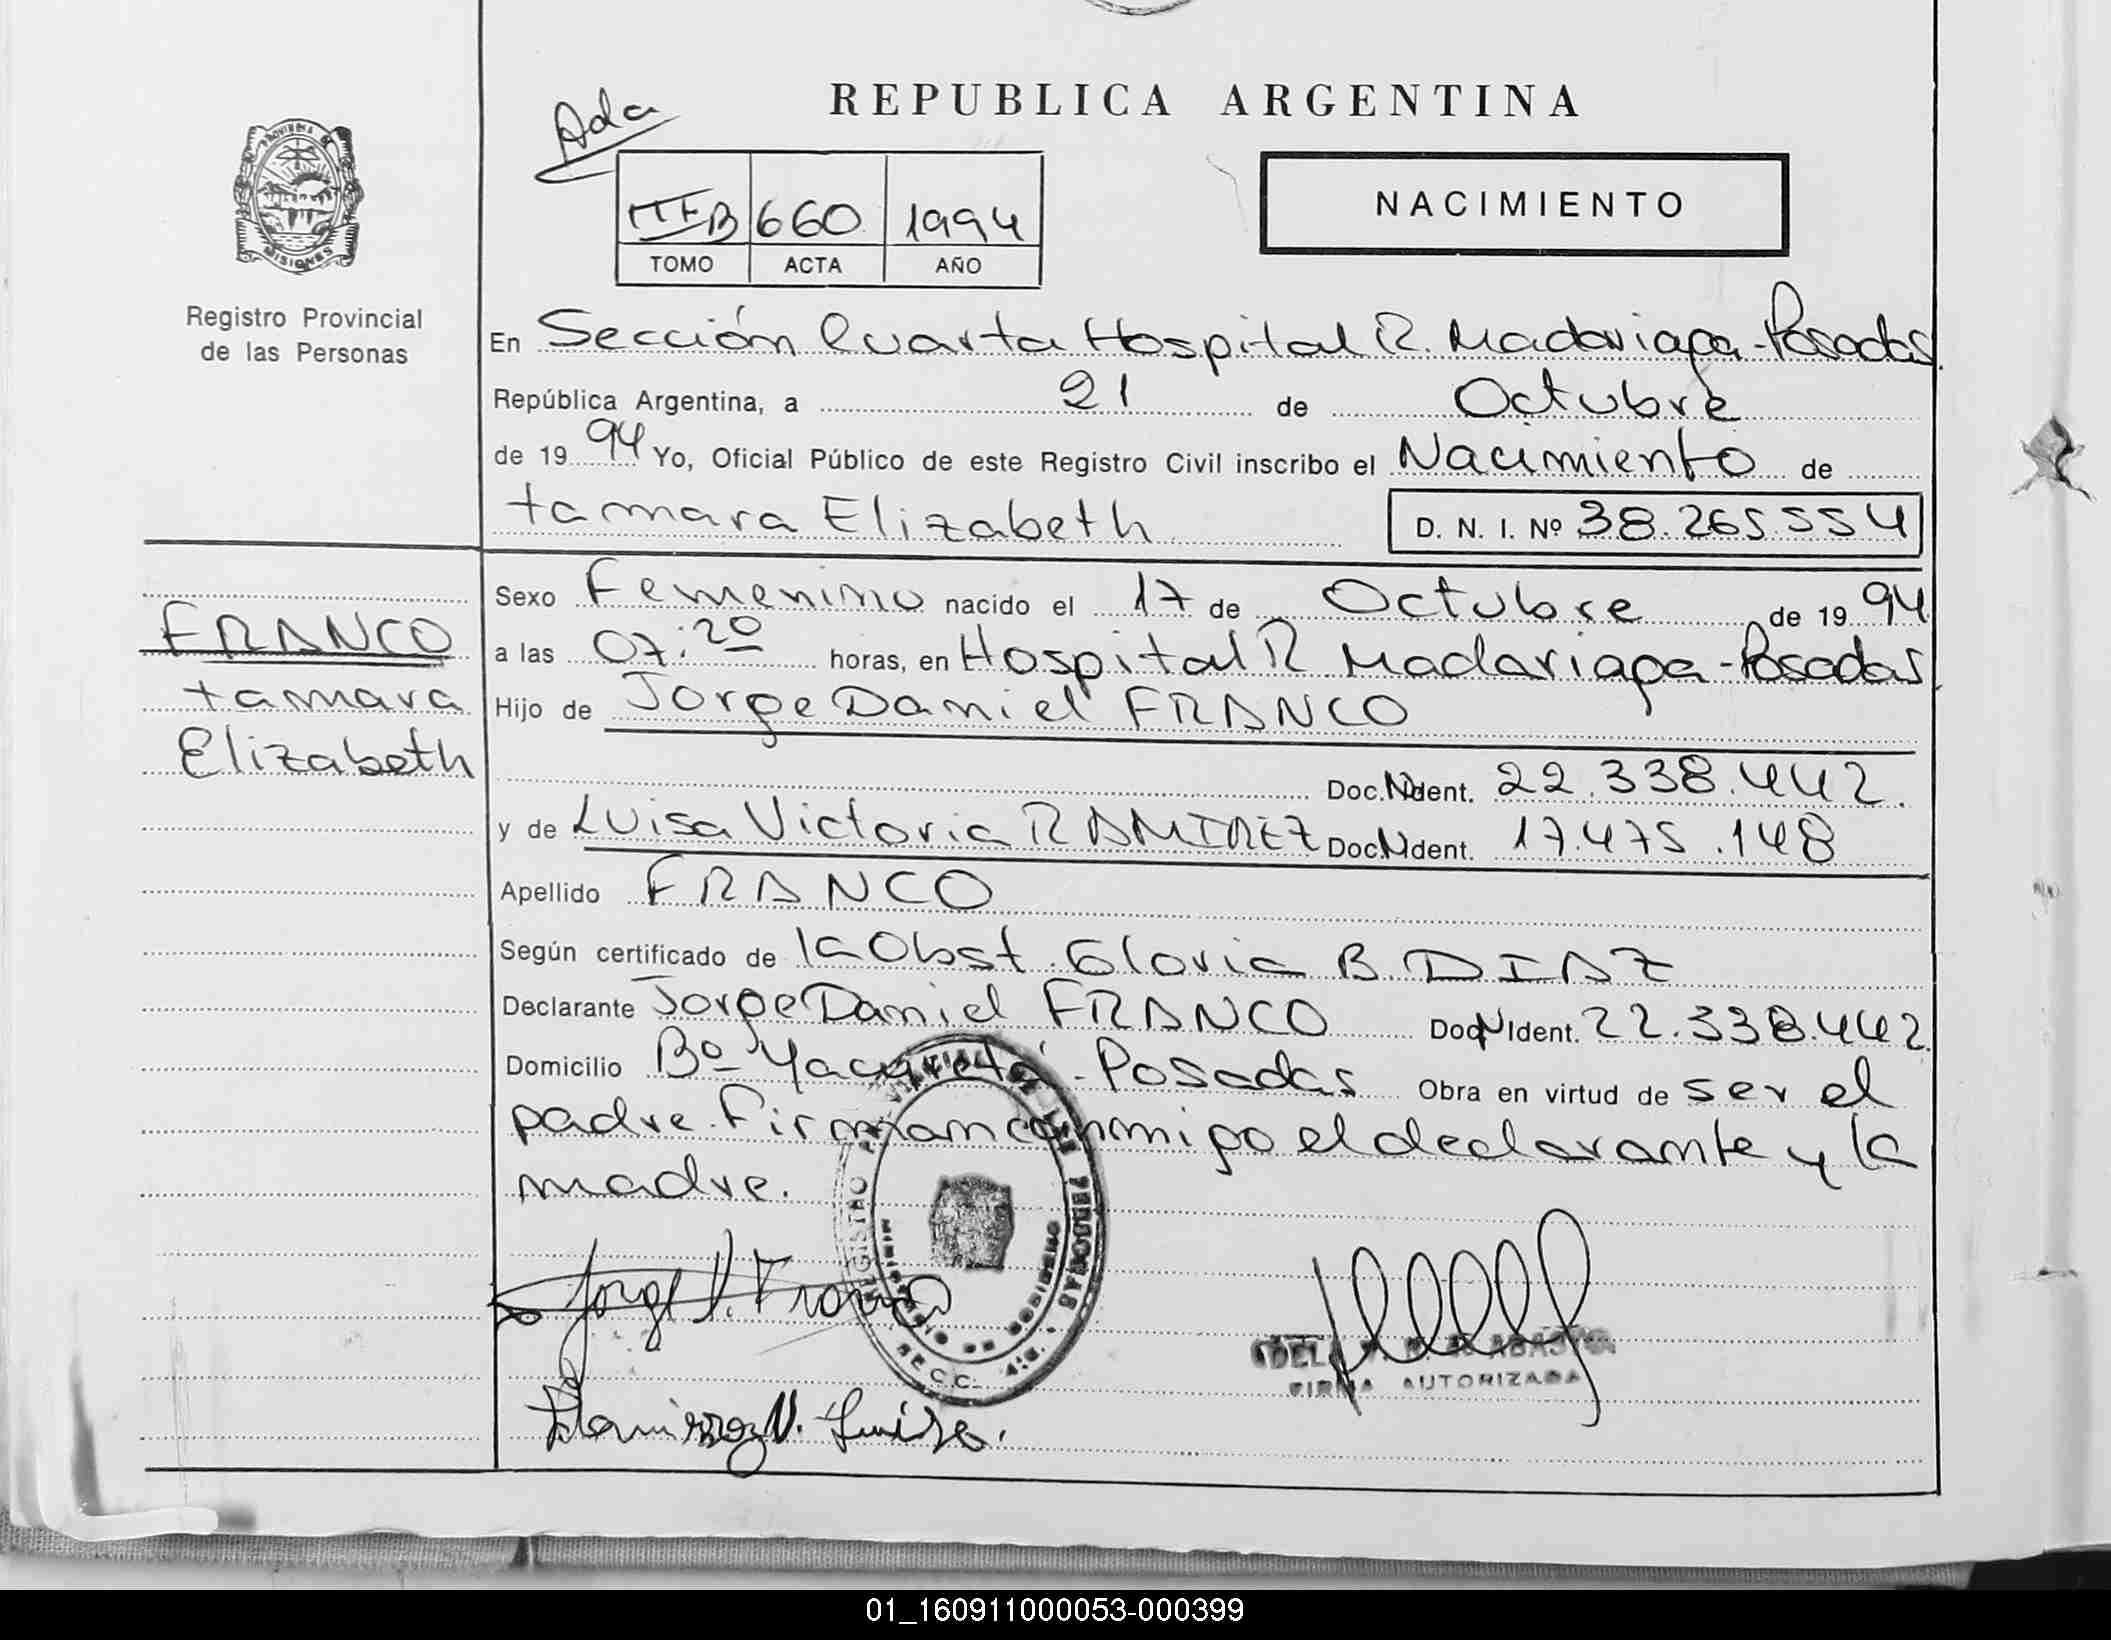 REPUBLICA ARGENTINA
Ada
660 1994
TOMO ACTA AÑO
NACIMIENTO
PROVINCIA DE MISIONES
Registro Provincial
de las Personas
En Sección Cuarta Hospital R. Madariaga - Posadas
República Argentina, a 21 de Octubre
de 19 94 Yo, Oficial Público de este Registro Civil inscribo el Nacimiento de
tamara Elizabeth D. N. I. Nº 38.265.554
FRANCO
tamara
Elizabeth
Sexo Femenino nacido el 17 de Octubre de 19 94
a las 07:20 horas, en Hospital R Madariaga - Posadas
Hijo de Jorge Daniel FRANCO
Doc. N Ident. 22.338.442.
y de Luisa Victoria RAMIREZ Doc. N Ident. 17.475.148
Apellido FRANCO
Según certificado de la Obst. Gloria B DIAZ
Declarante Jorge Daniel FRANCO Doc. N Ident. 22.338.442.
Domicilio Bº Yacyretá - Posadas Obra en virtud de ser el
padre. Firman conmigo el declarante y la
madre.
REGISTRO PROVINCIAL DE LAS PERSONAS
MINISTERIO DE GOBIERNO
SECC. 4ta.
Jorge D. Franco
Ramirez V. Luisa.
FIRMA AUTORIZADA
01_160911000053-000399